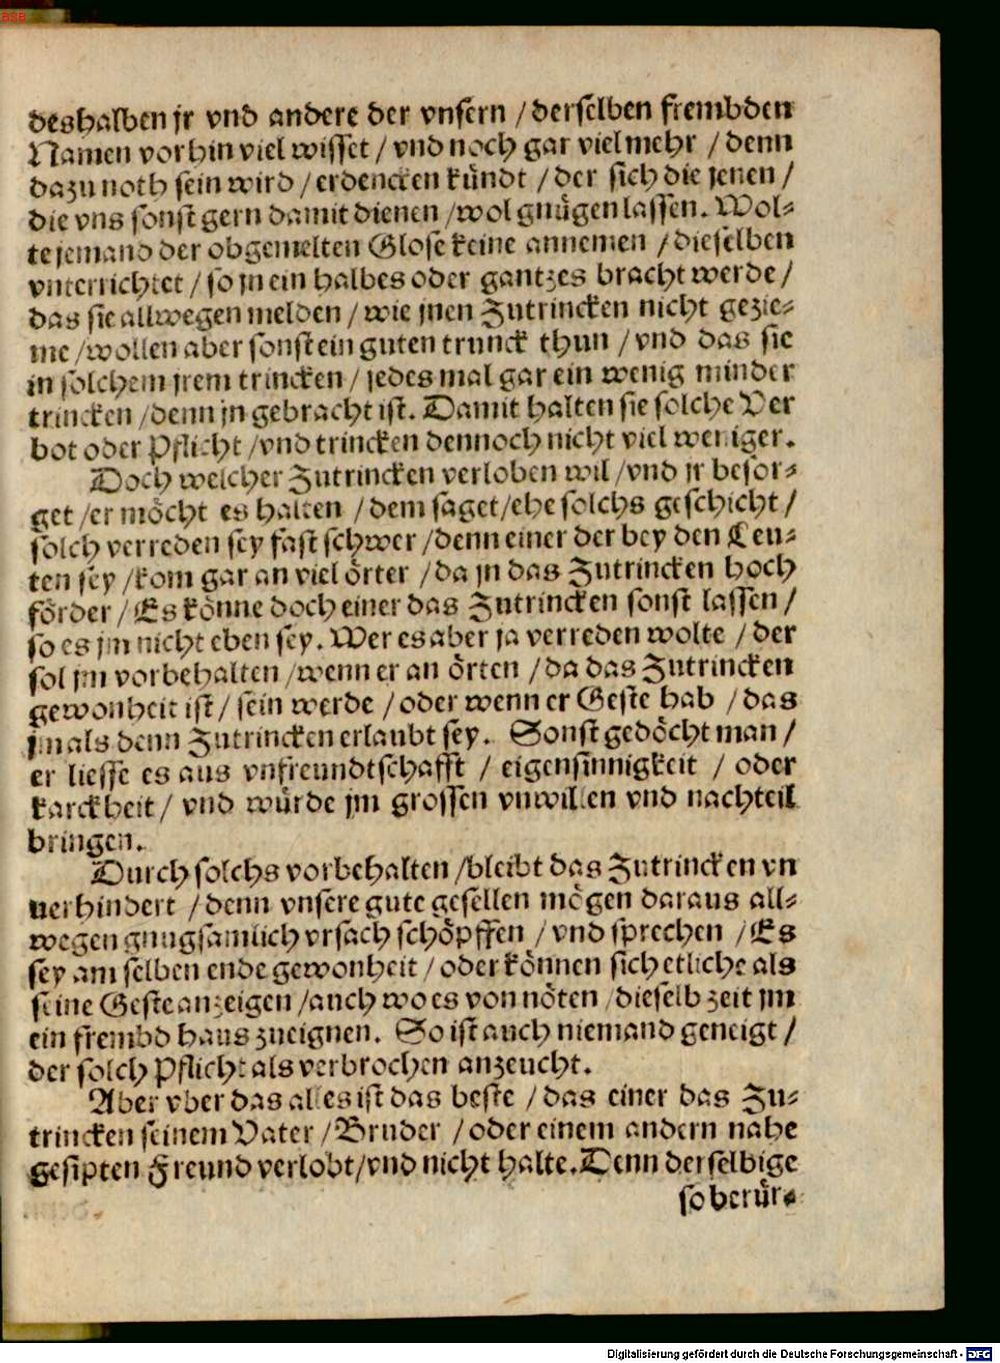 BSB
deshalben jr vnd andere der vnsern / derselben frembden
Namen vorhin viel wisset / vnd noch gar viel mehr / denn
dazu noth sein wird / erdencken kündt / der sich die jenen /
die vns sonst gern damit dienen / wol gnügen lassen. Wol-
te jemand der obgemelten Glose keine annemen / dieselben
vnterrichtet / so jn ein halbes oder gantzes bracht werde /
das sie allwegen melden / wie jnen Zutrincken nicht gezie-
me / wollen aber sonst ein guten trunck thun / vnd das sie
in solchem jrem trincken / jedes mal gar ein wenig minder
trincken / denn jn gebracht ist. Damit halten sie solche Ver
bot oder Pflicht / vnd trincken dennoch nicht viel weniger.
Doch welcher Zutrincken verloben wil / vnd jr besor-
get / er möcht es halten / dem saget / ehe solchs geschicht /
solch verreden sey fast schwer / denn einer der bey den Leu-
ten sey / kom gar an viel örter / da jn das Zutrincken hoch
förder / Es könne doch einer das Zutrincken sonst lassen /
so es jm nicht eben sey. Wer es aber ja verreden wolte / der
sol jm vorbehalten / wenn er an örten / da das Zutrincken
gewonheit ist / sein werde / oder wenn er Geste hab / das
jm als denn Zutrincken erlaubt sey. Sonst gedöcht man /
er liesse es aus vnfreundtschafft / eigensinnigkeit / oder
karckheit / vnd würde jm grossen vnwillen vnd nachteil
bringen.
Durch solchs vorbehalten / bleibt das Zutrincken vn
uerhindert / denn vnsere gute gesellen mögen daraus all-
wegen gnugsamlich vrsach schöpffen / vnd sprechen / Es
sey am selben ende gewonheit / oder können sich etliche als
seine Geste anzeigen / auch wo es von nöten / dieselb zeit jm
ein frembd haus zueignen. So ist auch niemand geneigt /
der solch Pflicht als verbrochen anzeucht.
Aber vber das alles ist das beste / das einer das Zu-
trincken seinem Vater / Bruder / oder einem andern nahe
gesipten Freund verlobt / vnd nicht halte. Denn derselbige
so berür-
Digitalisierung gefördert durch die Deutsche Forschungsgemeinschaft - DFG